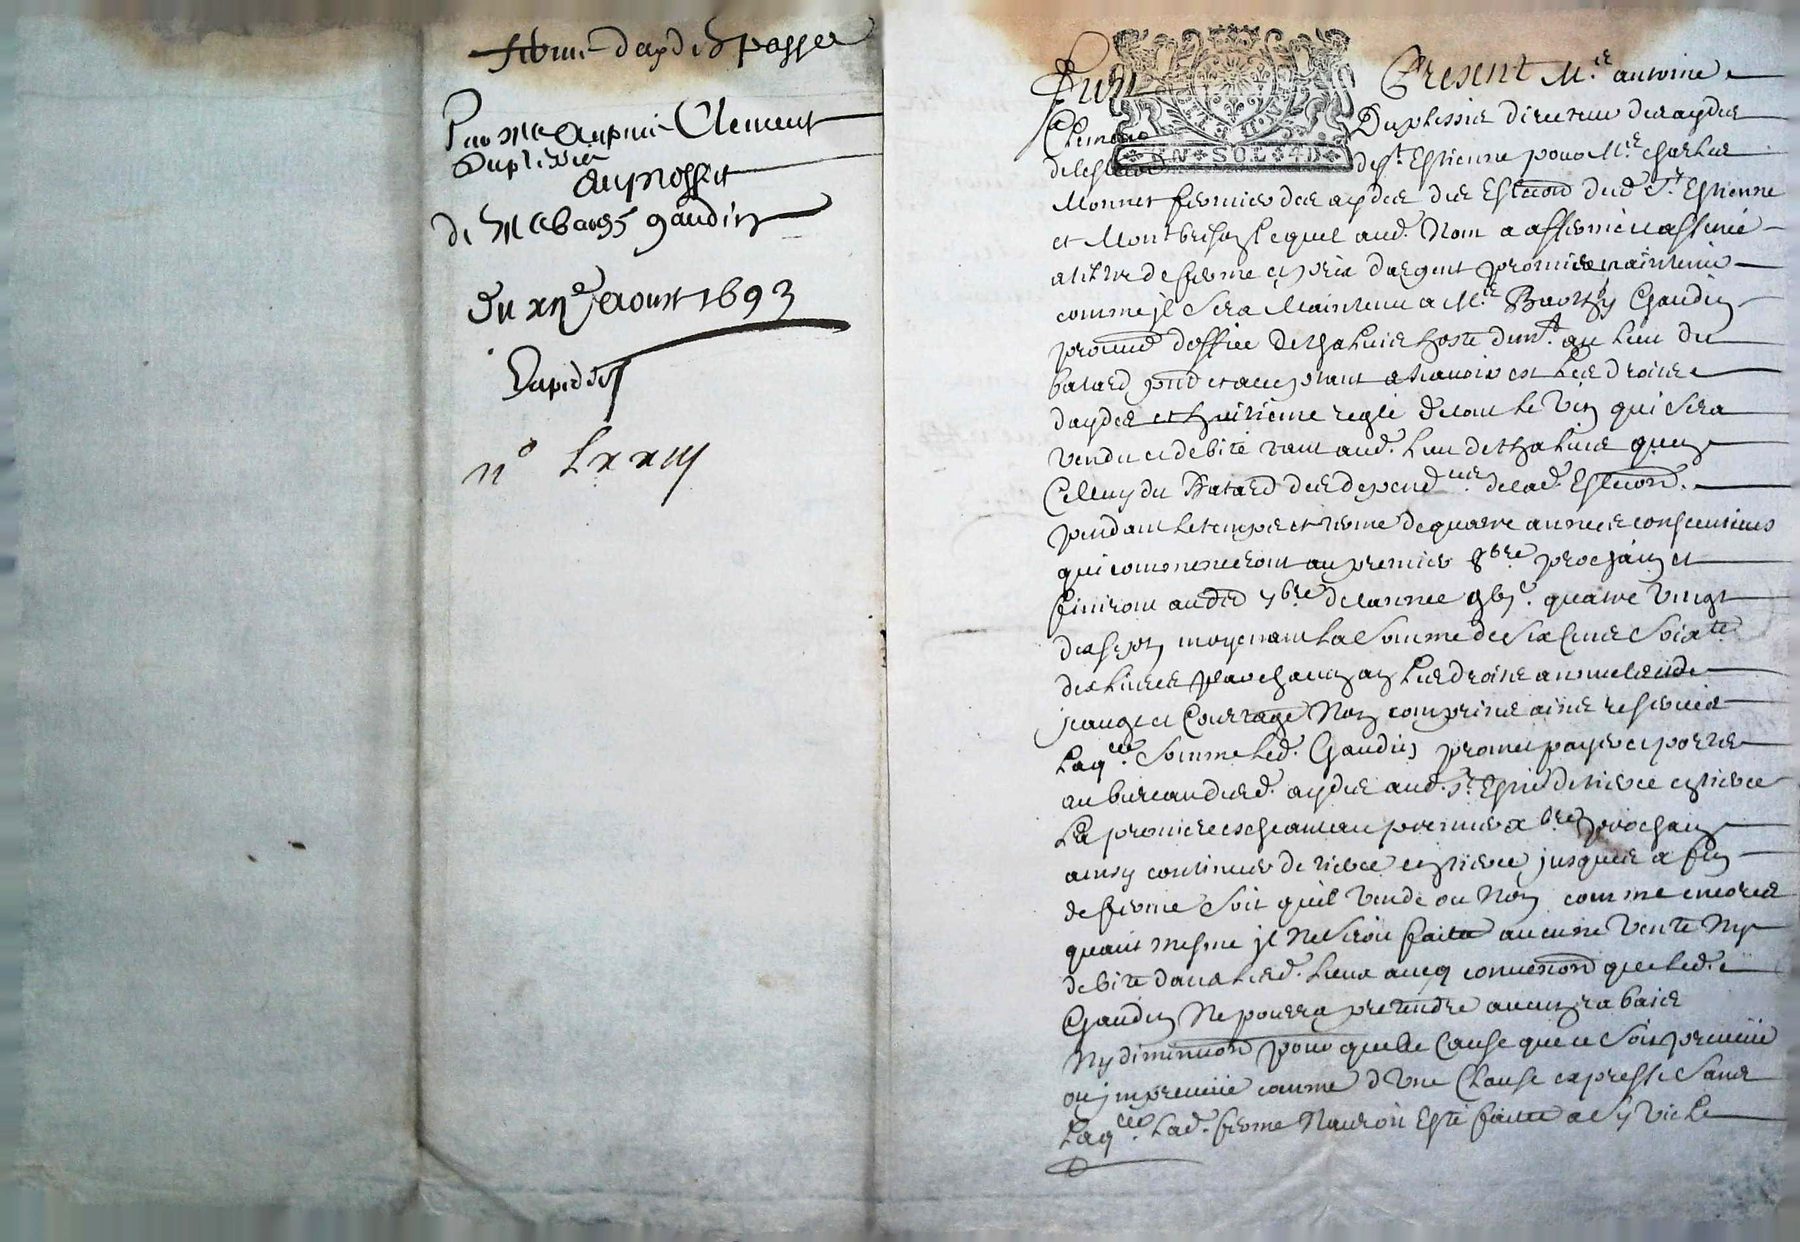 ferme daydes passee
Par Mre Anthoine Clement
Duplessier
au proffit
de Me Barth gaudin
Du xiie aoust 1693
Expedié
n° Lxxiii
Present Mre antoine
Clement Duplessis directeur des aydes
UN SOL 4D
de leslection de St Estienne pour Mre Charles
Monnet fermier des aydes des Eslection dud St Estienne
et Montbrison lequel aud. Nom a affermé et assencé
a tiltre de ferme et prix dargent promis maintenir
comme jl sera Maintenu a Mre Barthy Gaudin
d'office de hoste dem.t au Lieu du
batard pnt et acceptant a scavoir est Les droits
daydes et huitieme reglé de tout Le Vin qui sera
vendu et debité tant aud. Lieu de que
Celluy du Batard des dependces de lad. Eslection.
pendant Le temps et terme de quatre années consecutives
qui commenceront au premier 8bre prochain et
finiront au dr 7bre de lannee gbic. quatre Vingt
dixsept moyenant La Somme de Six Cents Soixte
dix Livres par chacun an Les droits annuel et de
jeauge et Courtage Non comprins ains reservés
Laqlle Somme Led. Gaudin promet payer et porter
au bureau desd. aydes aud. St Estne de tierce en tierce
La premiere escheant au premier xbre prochain
ainsy continuer de tierce en tierce jusques a fin
de ferme Soit quil Vende ou Non comme encores
quant mesme jl Ne Seroit faite aucune Vente Ny
debite dans Lesd. Lieux avecq convention que Led.
Gaudin Ne pourra pretendre aucun rabais
Ny diminution pour quelle Cause que ce Soit preveüe
ou jmpreveüe comme d'Une Clause expresse Sans
Laqlle Lad. ferme Nauroit Esté faitte a Sy Vil